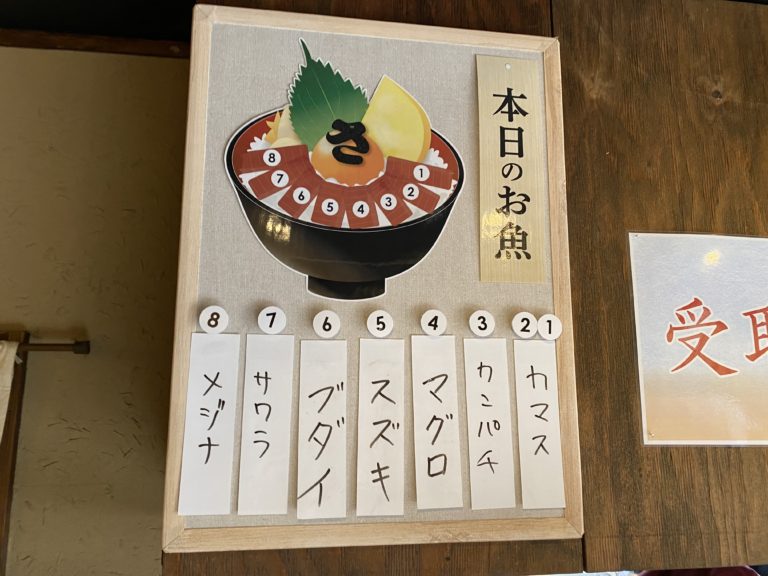 本日のお魚
さ
1
2
3
4
5
6
7
8
1
2
カマス
3
カンパチ
4
マグロ
5
スズキ
6
ブダイ
7
サワラ
8
メジナ
受